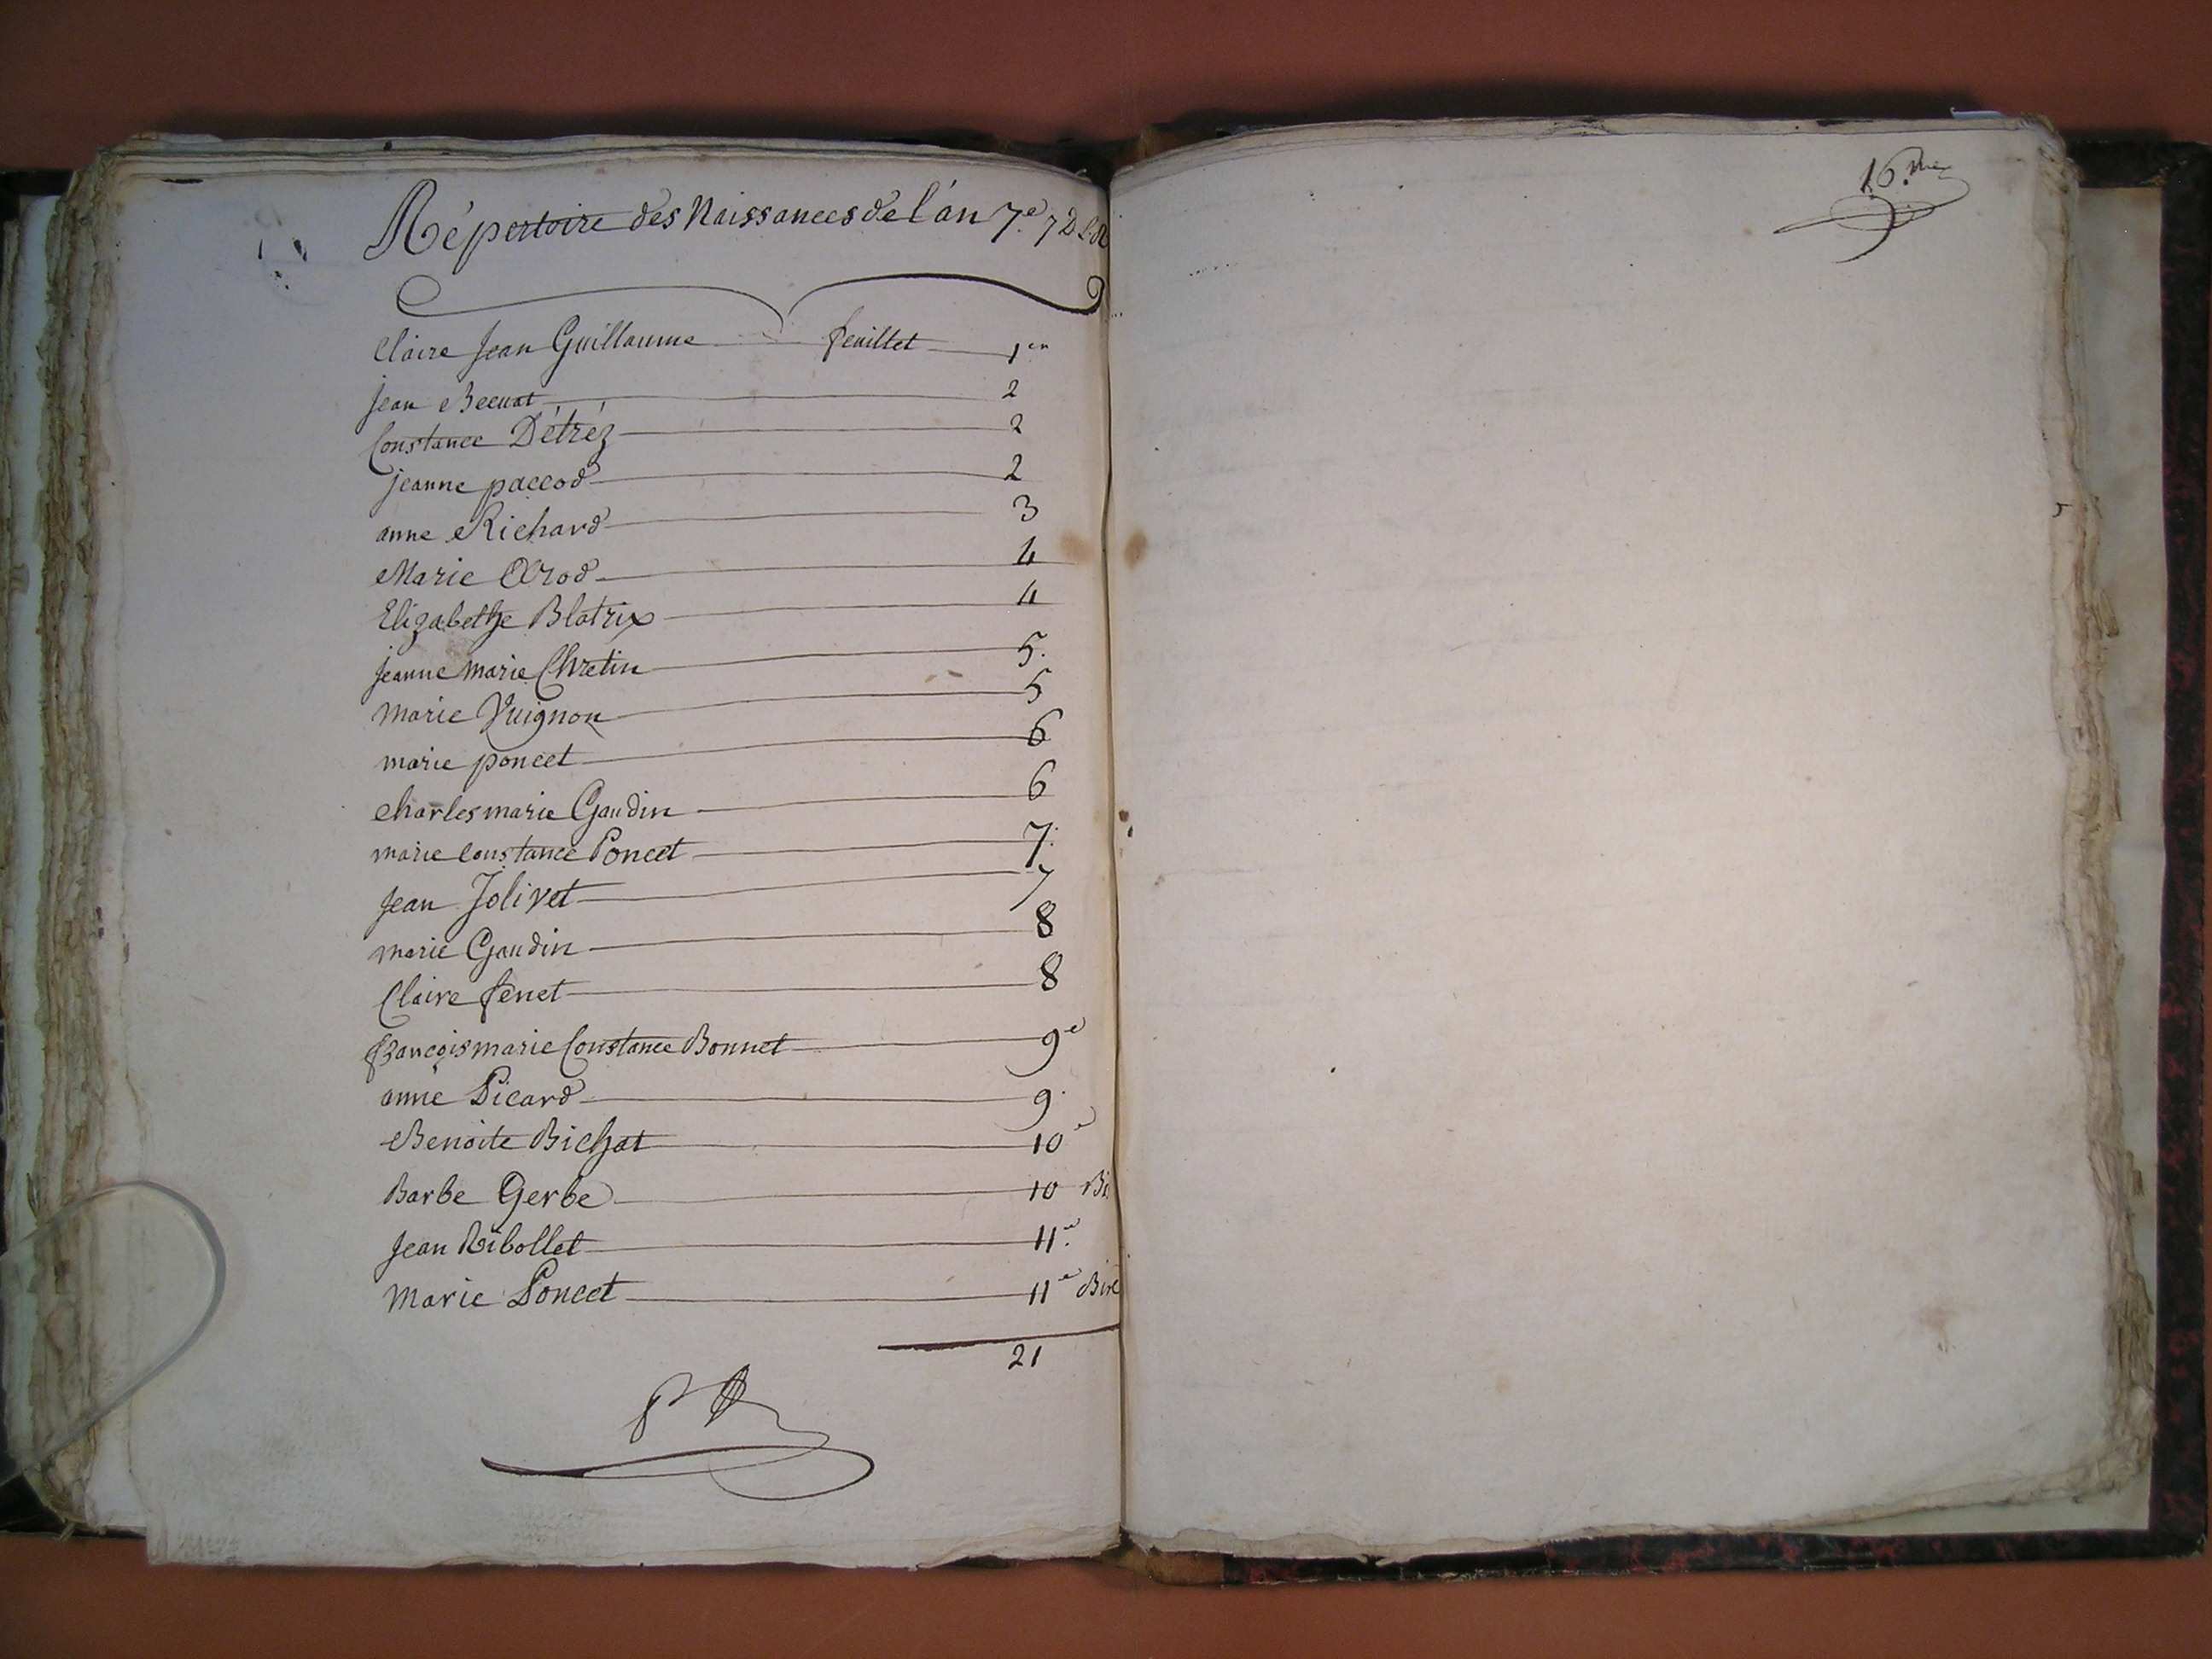 Répertoire des Naissances de l'an 7.e 7 D L R
Claire Jean Guillaume feuillet 1er
jean Becuat 2
Constance Détréz 2
jeanne paccod 2
anne Richard 3
Marie 4
Elizabethe Blatrix 4
jeanne marie Chretin 5.
marie Vuignon 5
marie poncet 6
charles marie Gaudin 6
marie constance Poncet 7.
jean Jolivet 7
marie Gaudin 8
Claire fenet 8
françois marie Constance Bonnet 9e
anne Picard 9.
Benoite Bichat 10e
Barbe Gerbe 10 Bi
jean Ribollet 11.e
Marie Poncet 11e
21
16.me